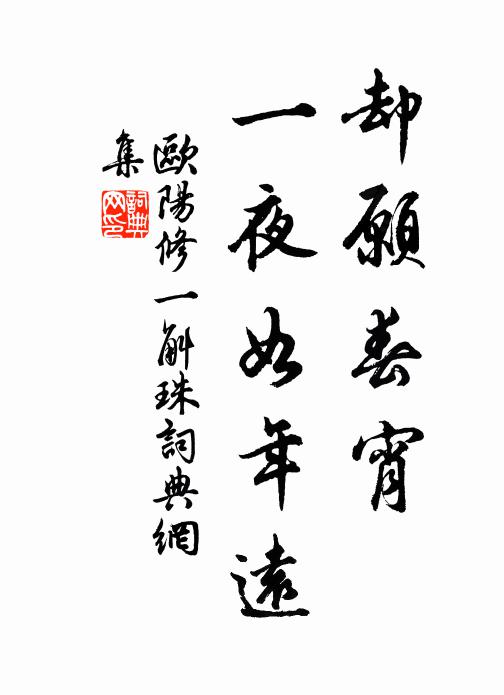 却願春宵
一夜如年遠
歐陽修一斛珠詞典網
集
詞典网印